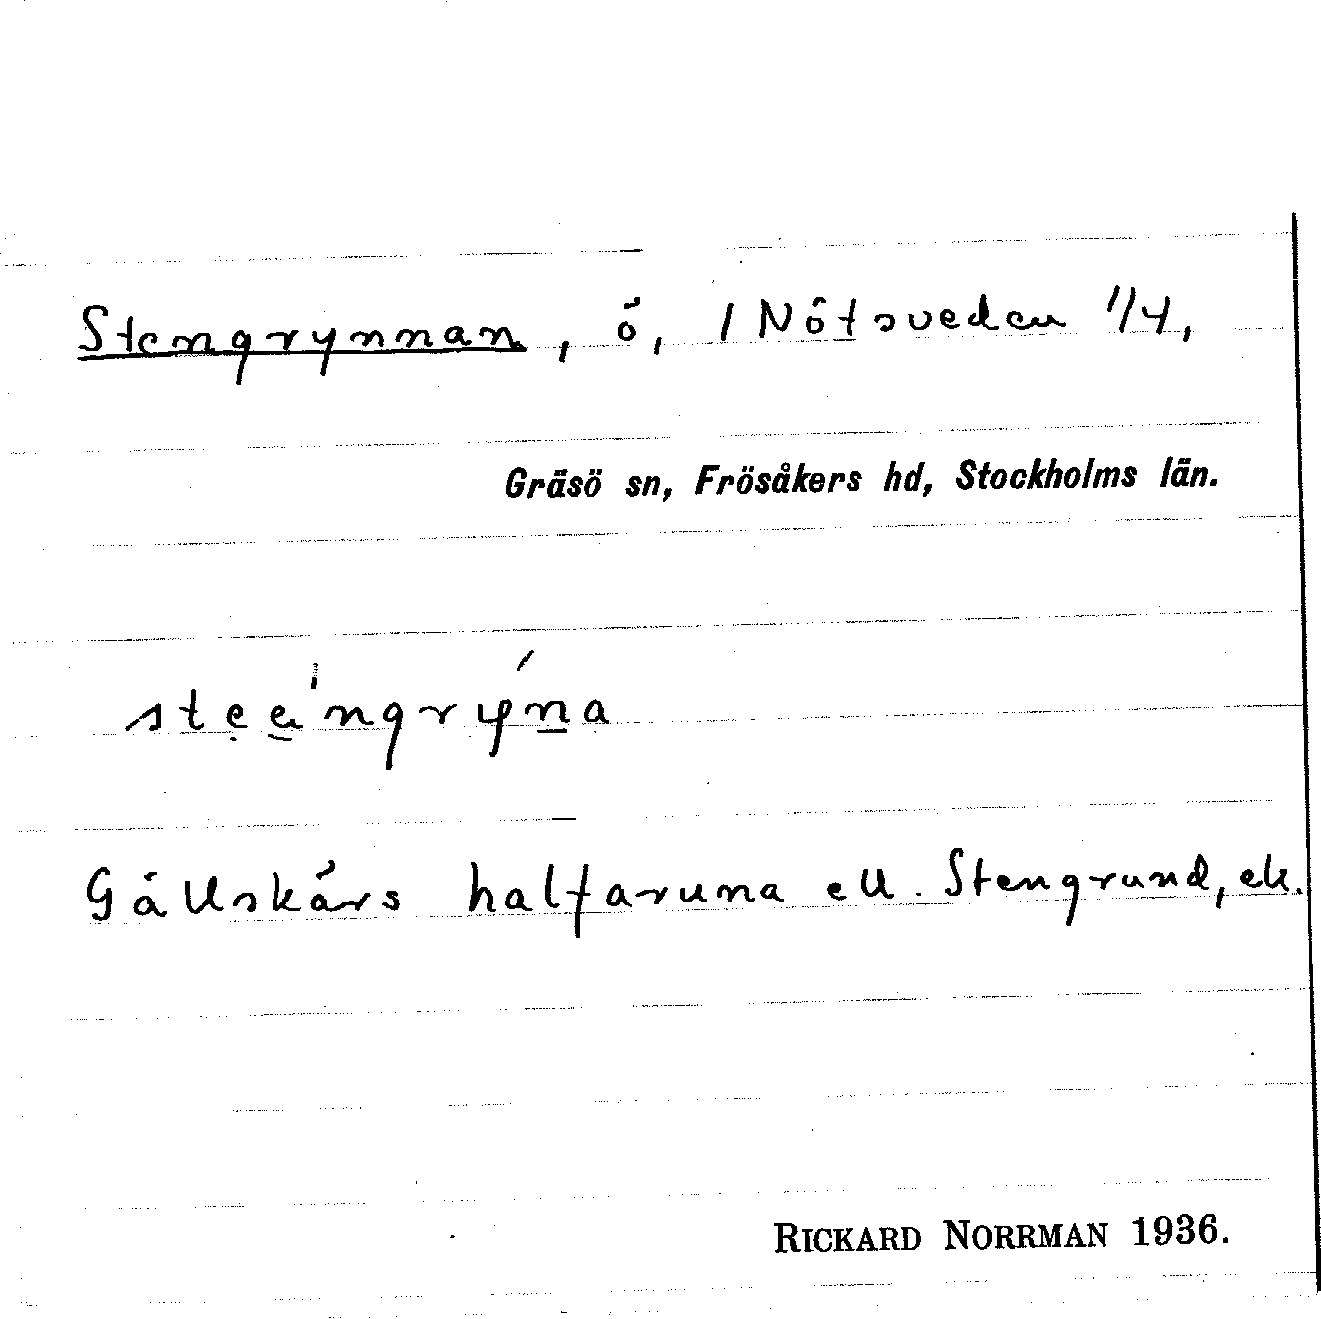 Stengrynnan, ö, 1 Nötsveden 1/4,
Gräsö sn, Frösåkers hd, Stockholms län.
steengryna
Gällskärs halfaruna ell. Stengrund, ek.
RICKARD NORRMAN 1936.